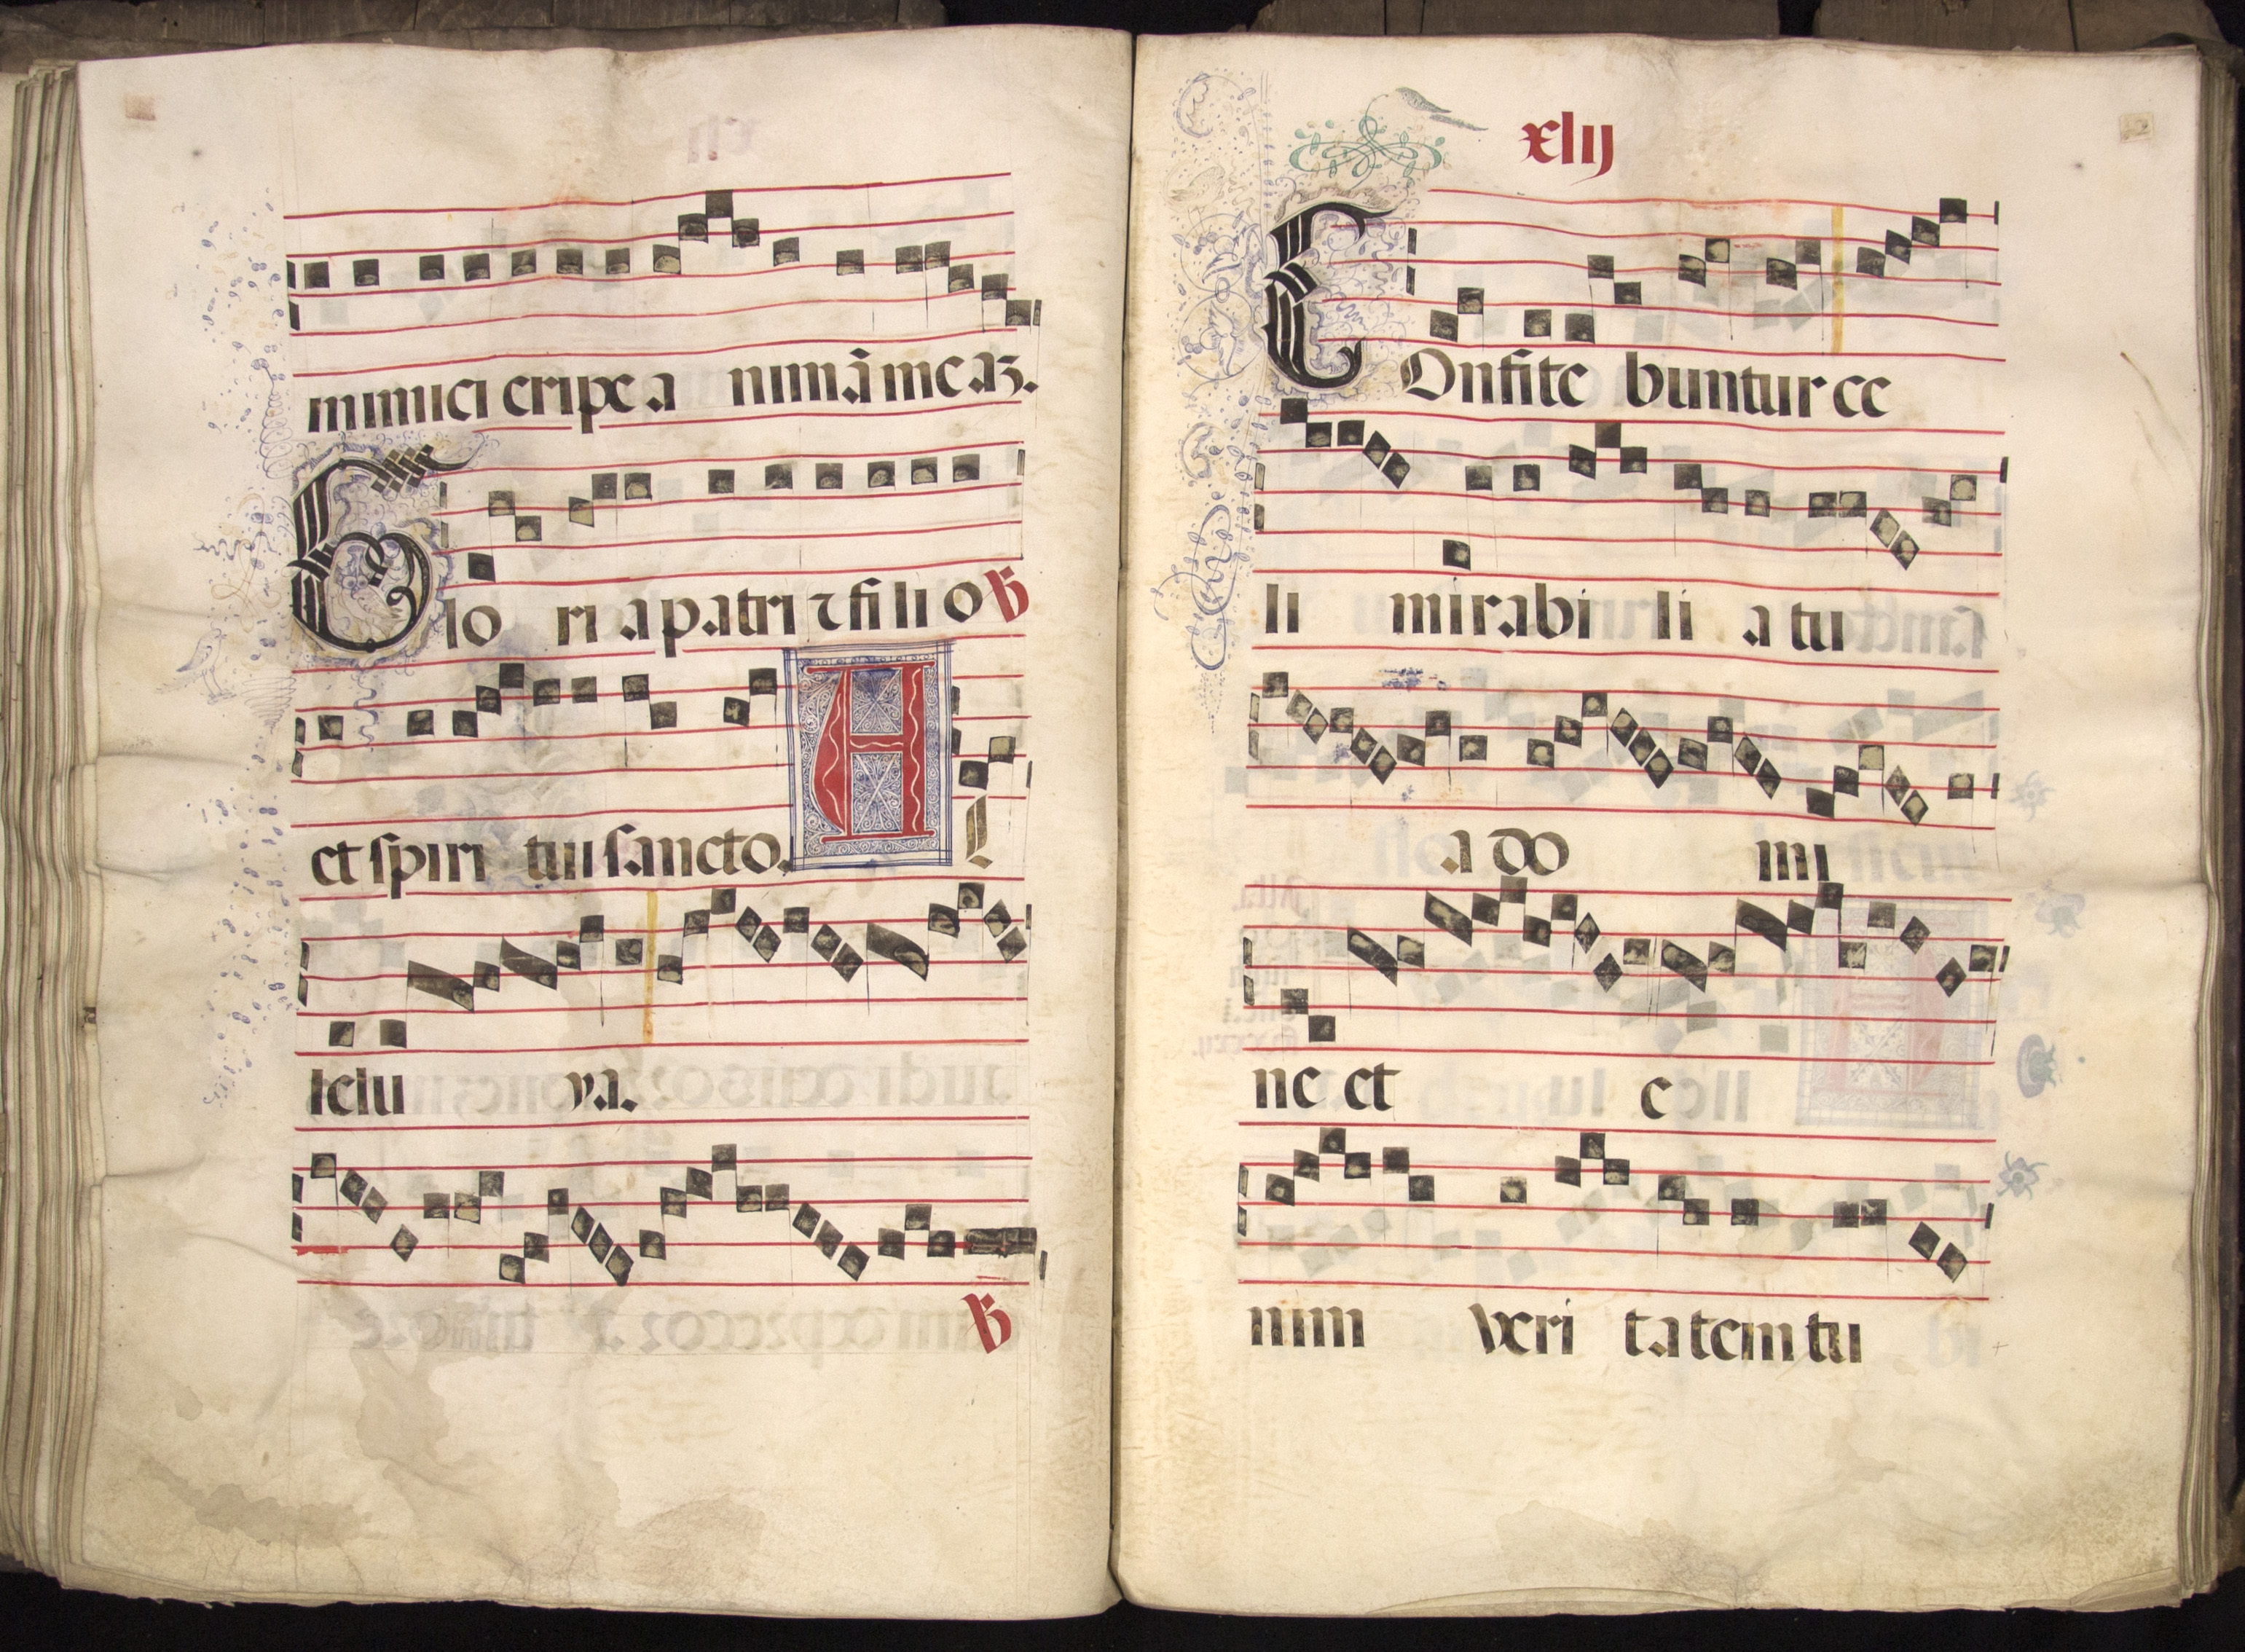 mimici eripe a nimā meaz.
Glo ri a patri ⁊ fi li o ℟
et spiri tui sancto. A L
lelu ya.
℟
xlij
COnfite buntur ce
li mirabi li a tu
a do mi
ne et e
nim veri tatem tu